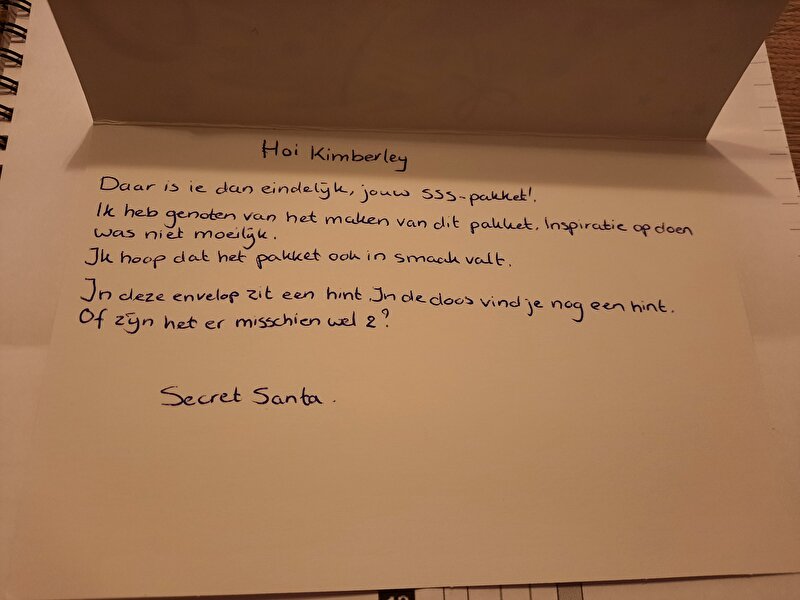 Hoi Kimberley
Daar is ie dan eindelijk, jouw SSS-pakket!
Ik heb genoten van het maken van dit pakket. Inspiratie op doen
was niet moeilijk.
Ik hoop dat het pakket ook in smaak valt.
In deze envelop zit een hint. In de doos vind je nog een hint.
Of zijn het er misschien wel 2?
Secret Santa.